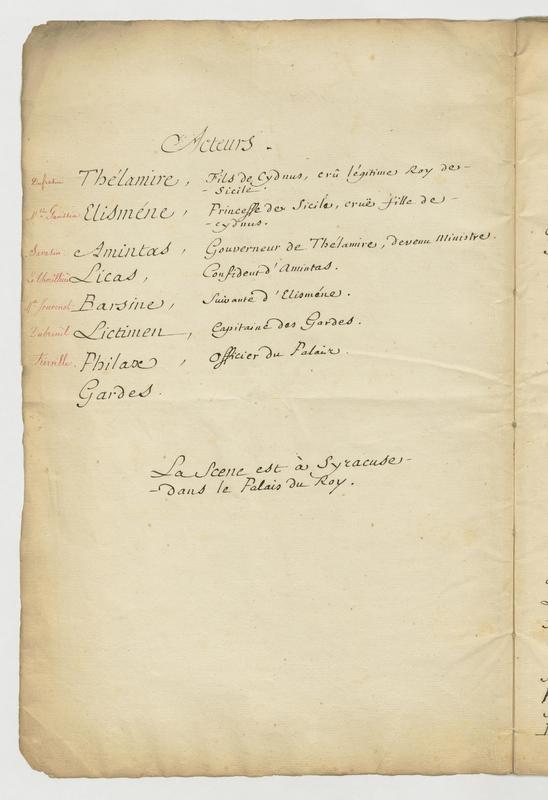 Acteurs.
Dufresne Thélamire, Fils de Cydnus, crû légitime Roy de
Sicile.
Mlle Gaussin Elisméne, Princesse de Sicile, crüe fille de
Cydnus.
Sarasin Amintas, Gouverneur de Thélamire, devenu Ministre.
Licas, Confident d'Amintas.
Mlle Jouvenot Barsine, Suivante d'Elisméne.
Dubreuil Lictimen, Capitaine des Gardes.
Fierville Philax, Officier du Palais.
Gardes.
La Scene est à Syracuse
dans le Palais du Roy.